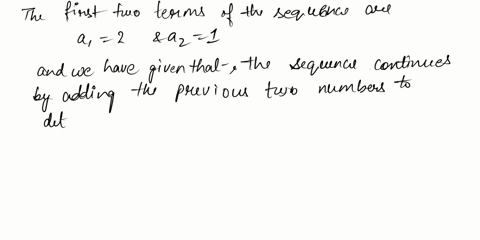 The first two terms of the sequence are
a₁ = 2 & a₂ = 1
and we have given that, the sequence continues
by adding the previous two numbers to
det